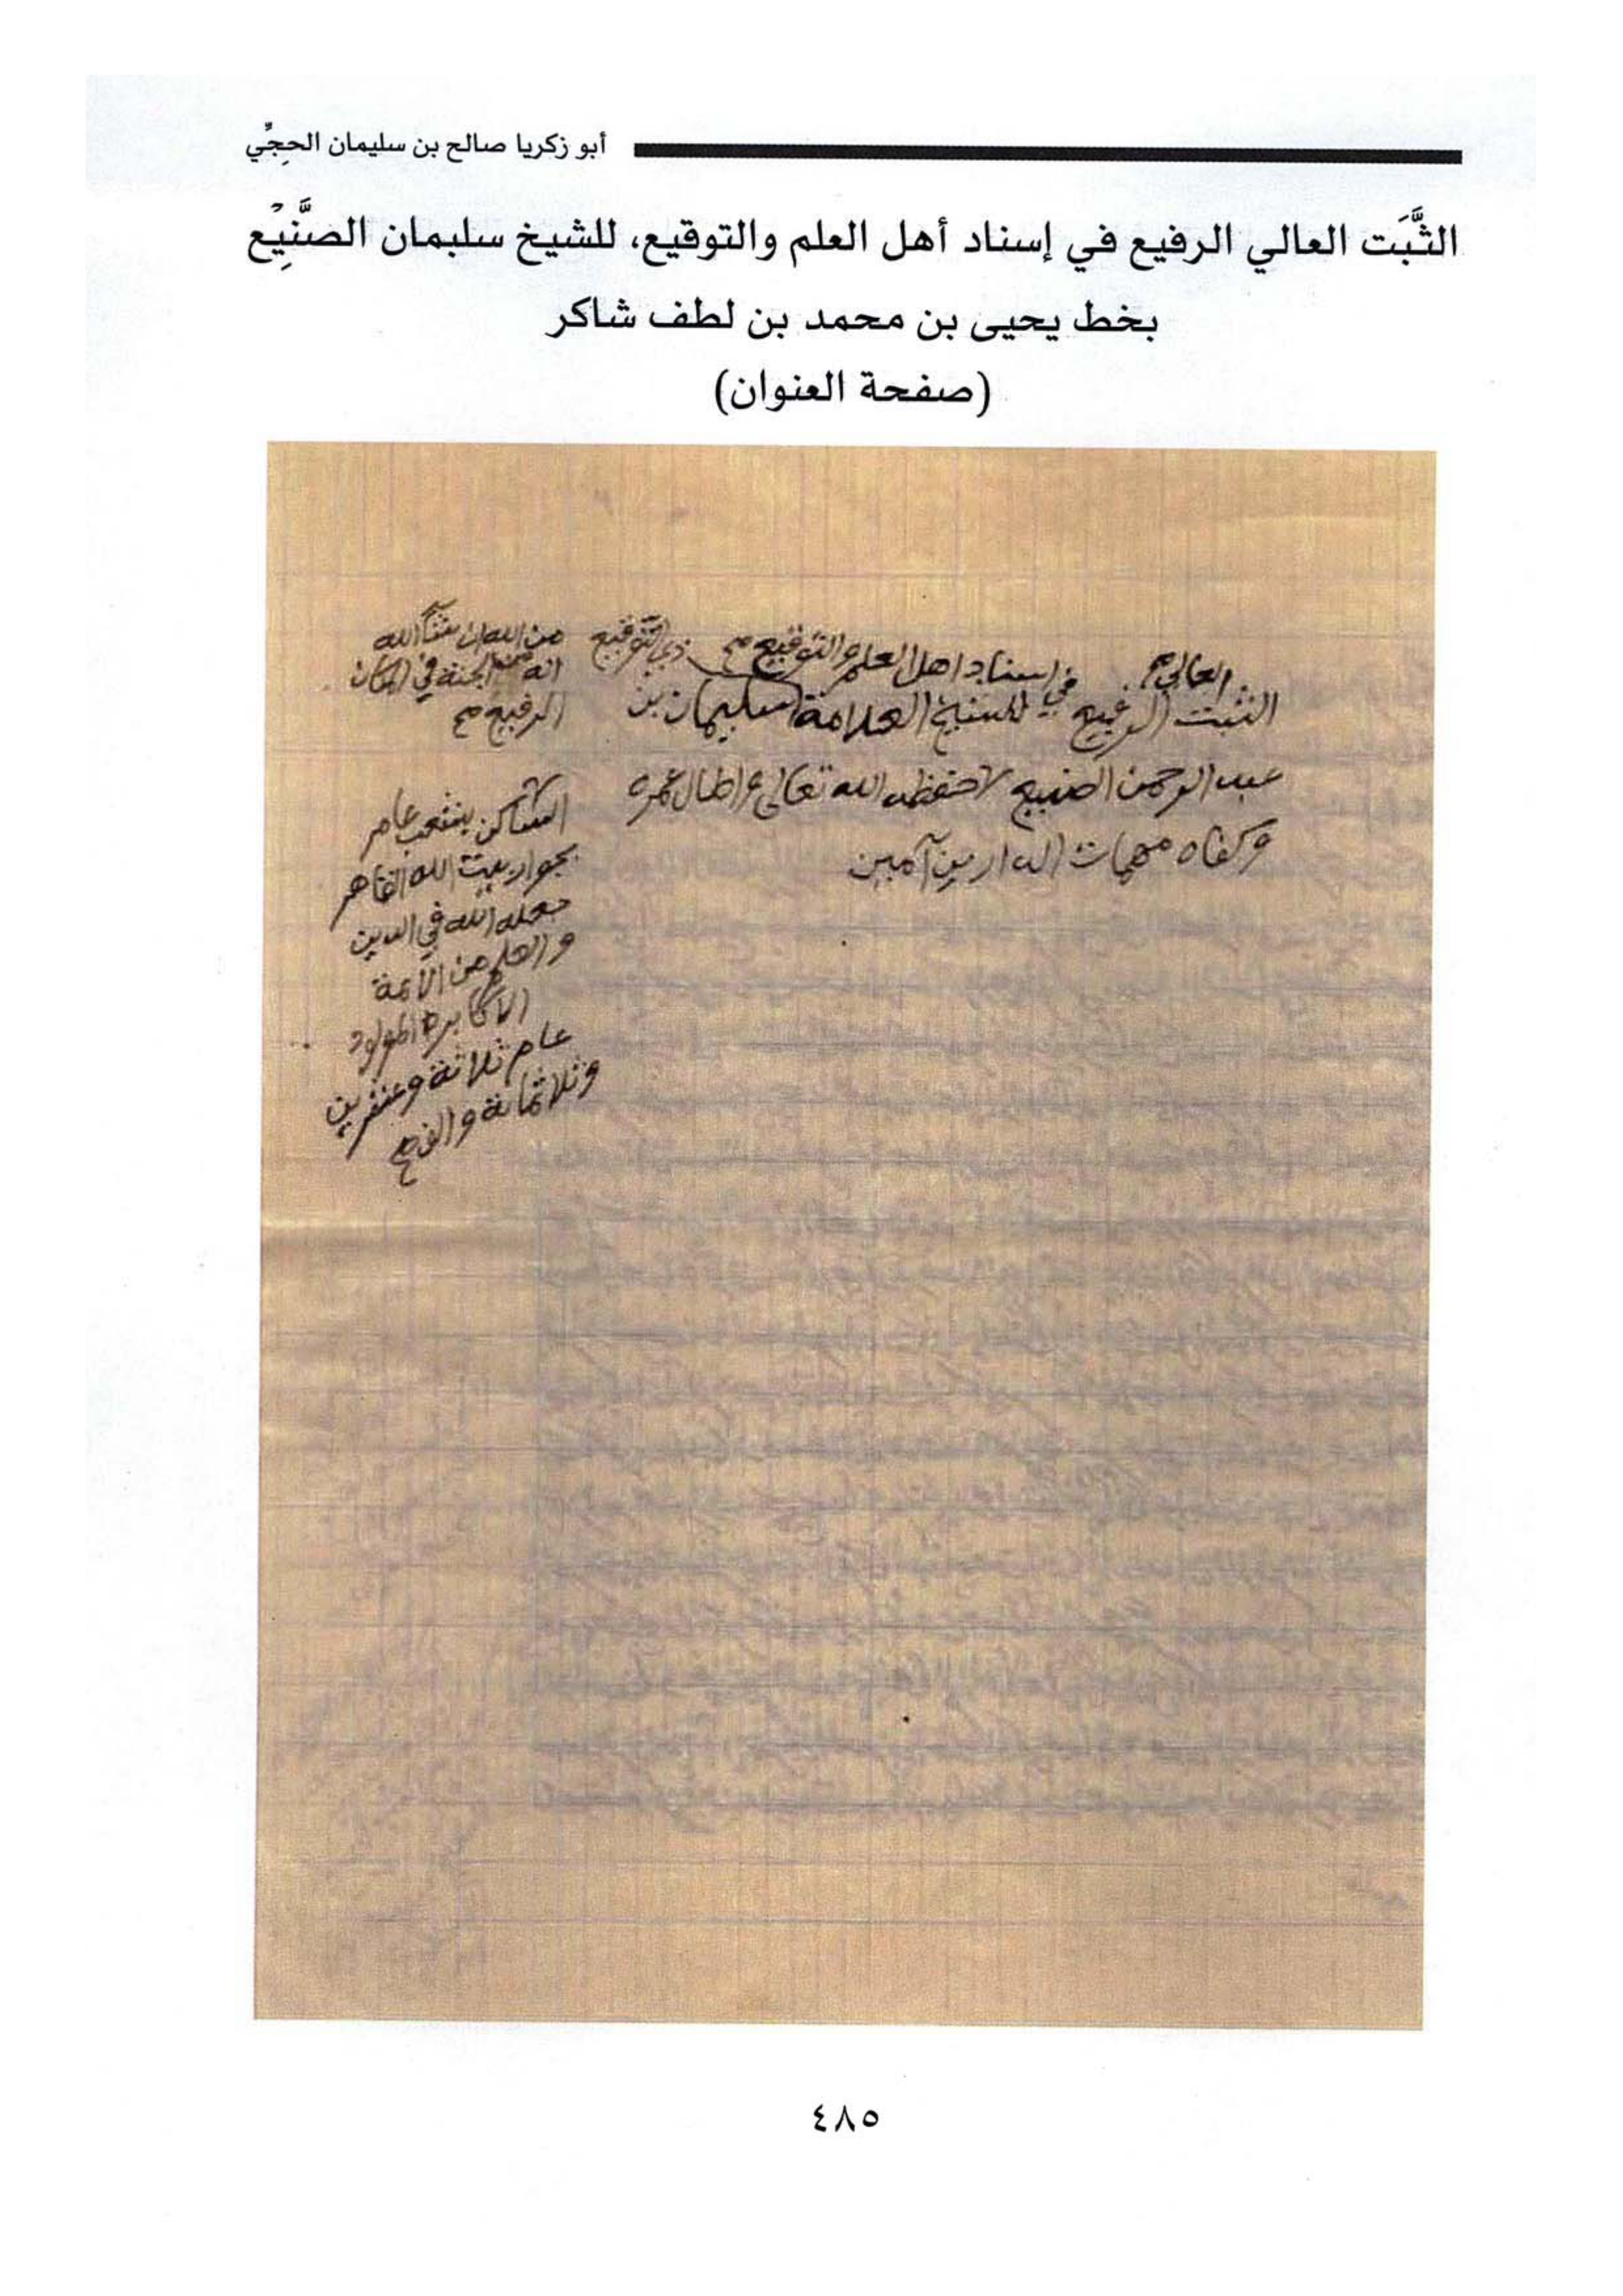 أبو زكريا صالح بن سليمان الحجِّي
الثَّبَت العالي الرفيع في إسناد أهل العلم والتوقيع، للشيخ سليمان الصَّنِيْع
بخط يحيى بن محمد بن لطف شاكر
(صفحة العنوان)
العالي في اسناد اهل العلم والتوقيع صح ذي التوقيع
الثبت الرفيع للشيخ العلامة سليمان بن
عبد الرحمن الصنيع حفظه الله تعالى واطال عمره
وكفاه مهمات الدارين آمين
من الله ان شاء الله
انه من الجنة في المكان
الرفيع صح
الساكن بشعب عامر
بجوار بيت الله القاهر
جعله الله في الدين
والعلم من الأئمة
الاكابره المولود
عام ثلاثة وعشرين
وثلاثمائة والف صح
٤٨٥